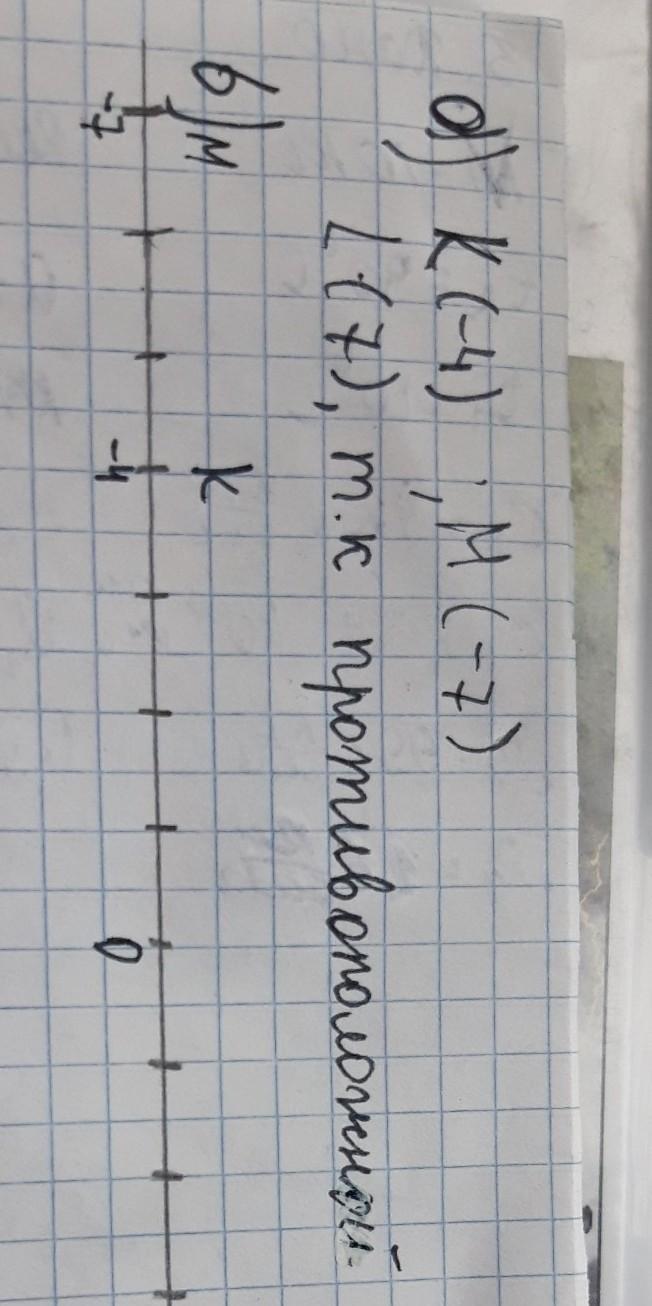 а) К(-4) ; М(-7)
L(7), т.к противоположный
б) М К
-7 -4 0